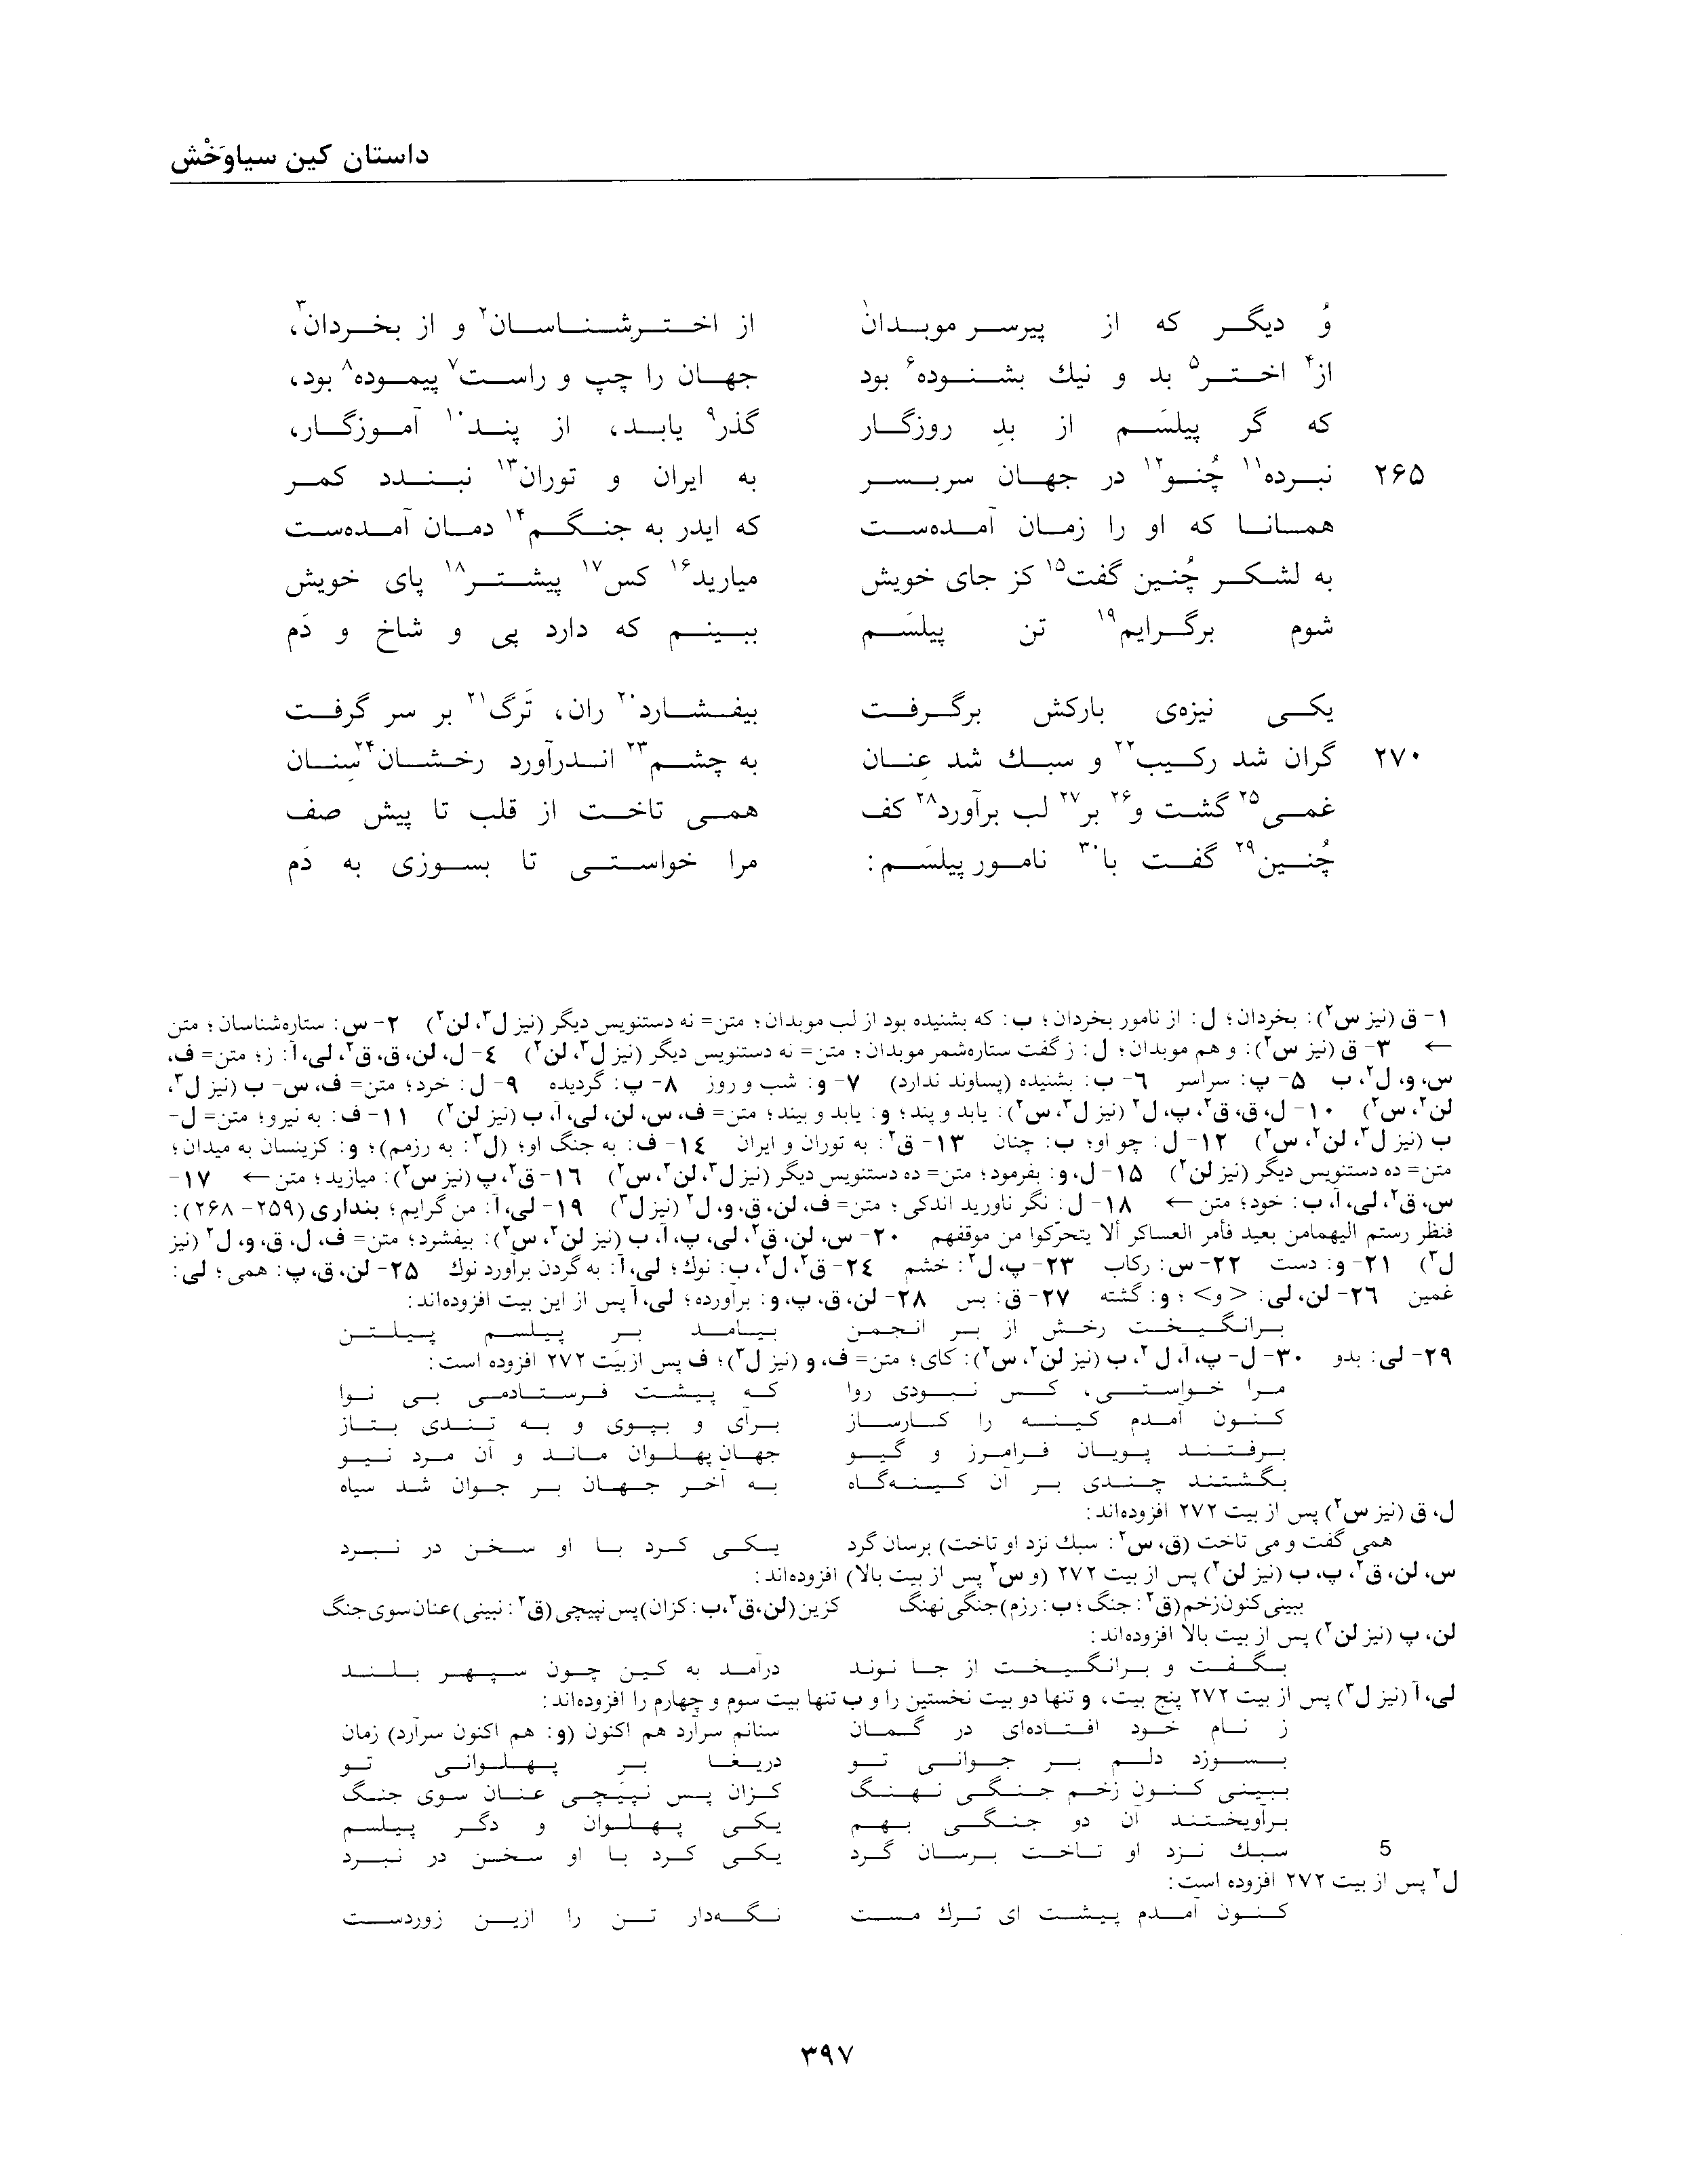 داستان کین سیاوَخْش
وُ دیگر که از پیرسر موبدان۱ از اخترشناسان۲ و از بخردان۳،
از۴ اختر۵ بد و نیك بشنوده۶ بود جهان را چپ و راست۷ پیموده۸ بود،
که گر پیلسَم از بدِ روزگار گذر۹ یابد، از پند۱۰ آموزگار،
۲۶۵ نبرده۱۱ چُنو۱۲ در جهان سربسر به ایران و توران۱۳ نبندد کمر
همانا که او را زمان آمده‌ست که ایدر به جنگم۱۴ دمان آمده‌ست
به لشکر چُنین گفت۱۵ کز جای خویش میارید۱۶ کس۱۷ پیشتر۱۸ پای خویش
شوم برگرایم۱۹ تن پیلسَم ببینم که دارد پی و شاخ و دَم
یکی نیزه‌ی بارکش برگرفت بیفشارد۲۰ ران، تَرگ۲۱ بر سر گرفت
۲۷۰ گران شد رکیب۲۲ و سبك شد عِنان به چشم۲۳ اندرآورد رخشان۲۴ سِنان
غمی۲۵ گشت و۲۶ بر۲۷ لب برآورد۲۸ کف همی تاخت از قلب تا پیش صف
چُنین۲۹ گفت با۳۰ نامور پیلسَم: مرا خواستی تا بسوزی به دَم
۱- ق (نیز س۲): بخردان؛ ل: از نامور بخردان؛ ب: که بشنیده بود از لب موبدان؛ متن= نه دستنویس دیگر (نیز ل۳، لن۲) ۲- س: ستاره‌شناسان؛ متن
← ۳- ق (نیز س۲): و هم موبدان؛ ل: ز گفت ستاره‌شمر موبدان؛ متن= نه دستنویس دیگر (نیز ل۳، لن۲) ٤- ل، لن، ق، ق۲، لی، آ: ز؛ متن= ف،
س، و، ل۲، ب ۵- پ: سراسر ٦- ب: بشنیده (پساوند ندارد) ۷- و: شب و روز ۸- پ: گردیده ۹- ل: خرد؛ متن= ف، س- ب (نیز ل۳،
لن۲، س۲) ۱۰- ل، ق، ق۲، پ، ل۲ (نیز ل۳، س۲): یابد و پند؛ و: یابد و بیند؛ متن= ف، س، لن، لی، آ، ب (نیز لن۲) ۱۱- ف: به نیرو؛ متن= ل-
ب (نیز ل۳، لن۲، س۲) ۱۲- ل: چو او؛ ب: چنان ۱۳- ق۲: به توران و ایران ۱٤- ف: به جنگ او؛ (ل۳: به رزمم)؛ و: کزینسان به میدان؛
متن= ده دستنویس دیگر (نیز لن۲) ۱۵- ل، و: بفرمود؛ متن= ده دستنویس دیگر (نیز ل۳، لن۲، س۲) ۱٦- ق۲، پ (نیز س۲): میازید؛ متن ← ۱۷-
س، ق۲، لی، آ، ب: خود؛ متن ← ۱۸- ل: نگر ناورید اندکی؛ متن= ف، لن، ق، و، ل۲ (نیز ل۳) ۱۹- لی، آ: من گرایم؛ بنداری (۲۵۹- ۲۶۸):
فنظر رستم الیهمامن بعید فأمر العساکر ألا یتحرّکوا من موقفهم ۲۰- س، لن، ق۲، لی، پ، آ، ب (نیز لن۲، س۲): بیفشرد؛ متن= ف، ل، ق، و، ل۲ (نیز
ل۳) ۲۱- و: دست ۲۲- س: رکاب ۲۳- پ، ل۲: خشم ۲٤- ق۲، ل۲، ب: نوك؛ لی، آ: به گردن برآورد نوك ۲۵- لن، ق، پ: همی؛ لی:
غمین ۲٦- لن، لی: <و>؛ و: گشته ۲۷- ق: بس ۲۸- لن، ق، پ، و: برآورده؛ لی، آ پس از این بیت افزوده‌اند:
برانگیخت رخش از بر انجمن بیامد بر پیلسم پیلتن
۲۹- لی: بدو ۳۰- ل- پ، آ، ل۲، ب (نیز لن۲، س۲): کای؛ متن= ف، و (نیز ل۳)؛ ف پس از بیت ۲۷۲ افزوده است:
مرا خواستی، کس نبودی روا که پیشت فرستادمی بی نوا
کنون آمدم کینه را کارساز برآی و بپوی و به تندی بتاز
برفتند پویان فرامرز و گیو جهان‌پهلوان ماند و آن مرد نیو
بگشتند چندی بر آن کینه‌گاه به آخر جهان بر جوان شد سیاه
ل، ق (نیز س۲) پس از بیت ۲۷۲ افزوده‌اند:
همی گفت و می تاخت (ق، س۲: سبك نزد او تاخت) برسان گرد یکی کرد با او سخن در نبرد
س، لن، ق۲، پ، ب (نیز لن۲) پس از بیت ۲۷۲ (و س۲ پس از بیت بالا) افزوده‌اند:
ببینی کنون زخم (ق۲: جنگ؛ ب: رزم) جنگی نهنگ کزین (لن، ق۲، ب: کزان) پس نپیچی (ق۲: نبینی) عنان سوی جنگ
لن، پ (نیز لن۲) پس از بیت بالا افزوده‌اند:
بگفت و برانگیخت از جا نوند درآمد به کین چون سپهر بلند
لی، آ (نیز ل۳) پس از بیت ۲۷۲ پنج بیت، و تنها دو بیت نخستین را و ب تنها بیت سوم و چهارم را افزوده‌اند:
ز نام خود افتاده‌ای در گمان سنانم سرآرد هم اکنون (و: هم اکنون سرآرد) زمان
بسوزد دلم بر جوانی تو دریغا برِ پهلوانی تو
ببینی کنون زخم جنگی نهنگ کزان پس نپیچی عنان سوی جنگ
برآویختند آن دو جنگی بهم یکی پهلوان و دگر پیلسم
5 سبك نزد او تاخت برسان گرد یکی کرد با او سخن در نبرد
ل۲ پس از بیت ۲۷۲ افزوده است:
کنون آمدم پیشت ای ترك مست نگه‌دار تن را ازین زوردست
۳۹۷